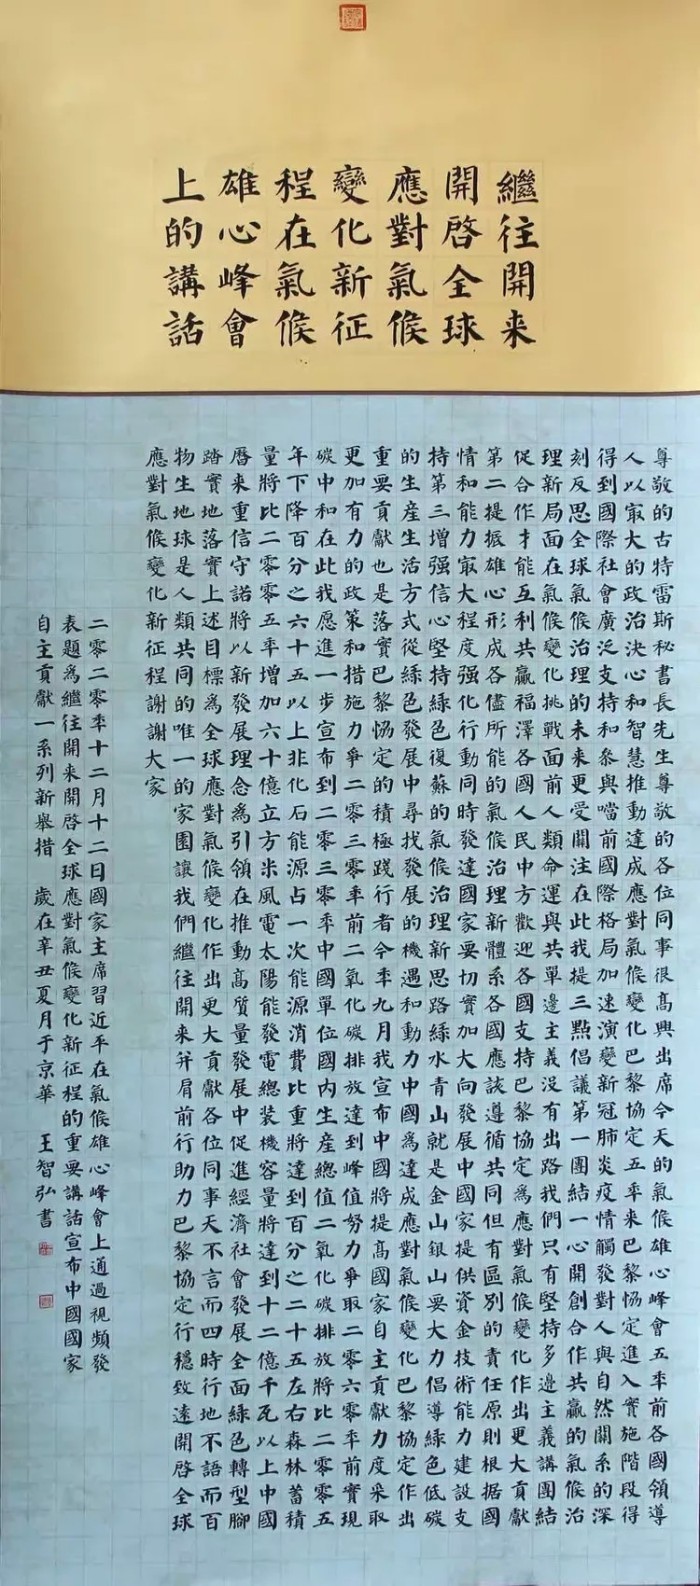 繼往開来
開啓全球
應對氣候
變化新征
程在氣候
雄心峰會
上的講話
尊敬的古特雷斯秘書長先生尊敬的各位同事很髙興出席今天的氣候雄心峰會五年前各國領導
人以㝡大的政治決心和智慧推動達成應對氣候變化巴黎協定五年来巴黎協定進入實施階段得
得到國際社會廣泛支持和參與噹前國際格局加速演變新冠肺炎疫情觸發對人與自然關系的深
刻反思全球氣候治理的未来更受關注在此我提三點倡議第一團結一心開創合作共贏的氣候治
理新局面在氣候變化挑戰面前人類命運與共單邊主義没有出路我們只有堅持多邊主義講團結
促合作才能互利共贏福澤各國人民中方歡迎各國支持巴黎協定為應對氣候變化作出更大貢獻
第二提振雄心形成各儘所能的氣候治理新體系各國應該遵循共同但有區别的責任原則根據國
情和能力㝡大程度强化行動同時發達國家要切實加大向發展中國家提供資金技術能力建設支
持第三增强信心堅持綠色復蘇的氣候治理新思路綠水青山就是金山銀山要大力倡導綠色低碳
的生産生活方式從綠色發展中尋找發展的機遇和動力中國為達成應對氣候變化巴黎協定作出
重要貢獻也是落實巴黎協定的積極踐行者今年九月我宣布中國將提髙國家自主貢獻力度采取
更加有力的政策和措施力爭二零三零年前二氧化碳排放達到峰值努力爭取二零六零年前實現
碳中和在此我愿進一步宣布到二零三零年中國單位國内生産總值二氧化碳排放將比二零零五
年下降百分之六十五以上非化石能源占一次能源消費比重將達到百分之二十五左右森林蓄積
量將比二零零五年增加六十億立方米風電太陽能發電總装機容量將達到十二億千瓦以上中國
曆来重信守諾將以新發展理念為引領在推動髙質量發展中促進經濟社會發展全面綠色轉型腳
踏實地落實上述目標為全球應對氣候變化作出更大貢獻各位同事天不言而四時行地不語而百
物生地球是人類共同的唯一的家園讓我們繼往開来并肩前行助力巴黎協定行穩致遠開啓全球
應對氣候變化新征程謝謝大家
二零二零年十二月十二日國家主席習近平在氣候雄心峰會上通過視頻發
表題為繼往開来開啓全球應對氣候變化新征程的重要講話宣布中國國家
自主貢獻一系列新舉措 歲在辛丑夏月于京華 王智弘書